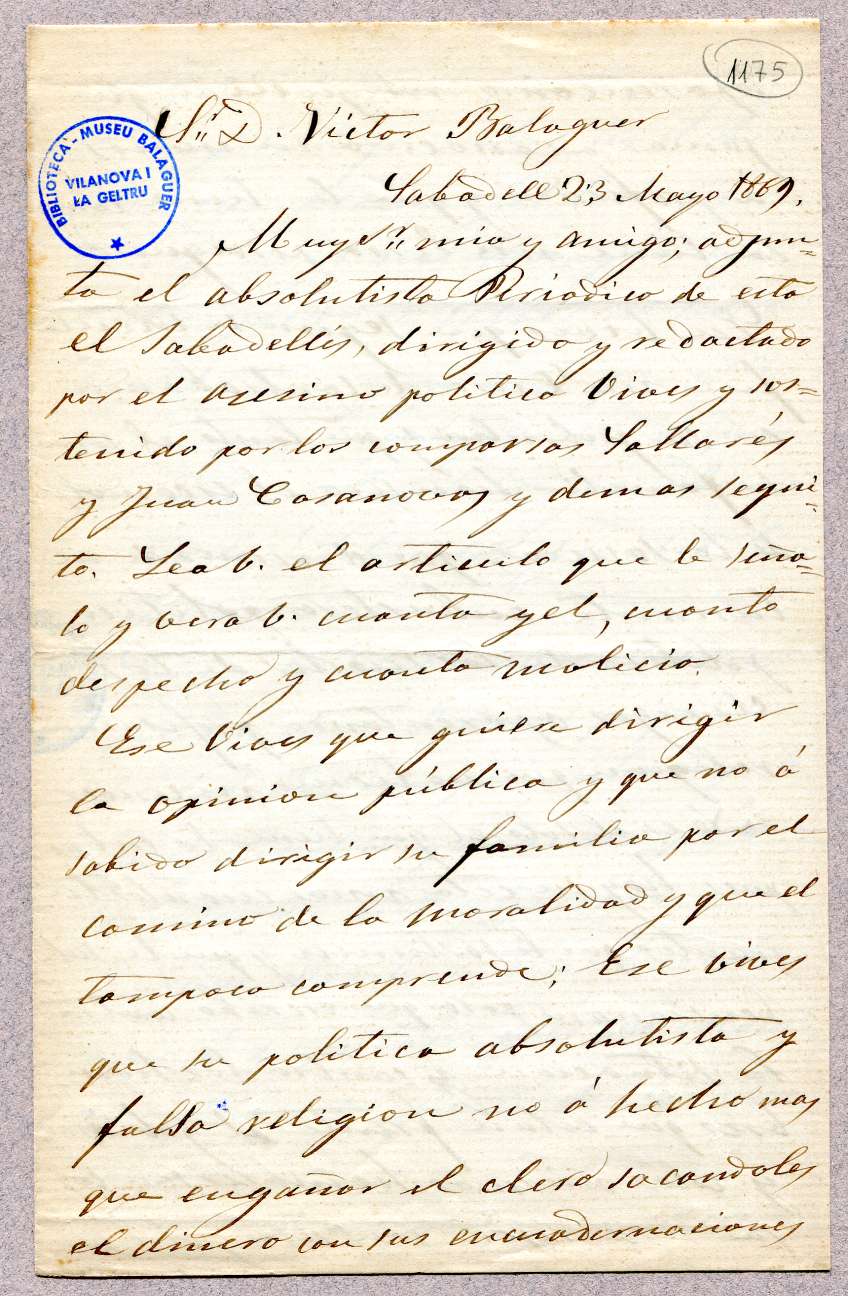 1175
Sr. D. Víctor Balaguer
BIBLIOTECA - MUSEU BALAGUER
VILANOVA I
LA GELTRU
Sabadell 23 Mayo 1869.
Muy Sr. mio y amigo; adjun=
to el absolutista Periodico de esta
el Sabadellés, dirigido y redactado
por el asesino politico Vives y sos=
tenido por los comparsas Sallarés
y Juan Casanovas y demas sequi=
to. Lea V. el articulo que le seña=
lo y vera V. cuanta yel, cuanto
despecho y cuanta malicia.
Ese Vives que quiere dirigir
la opinion pública y que no á
sabido dirigir su familia por el
camino de la moralidad y que el
tampoco comprende; Ese Vives
que su politica absolutista y
falsa religion no á hecho mas
que engañar el clero sacandoles
el dinero con sus encuadernaciones